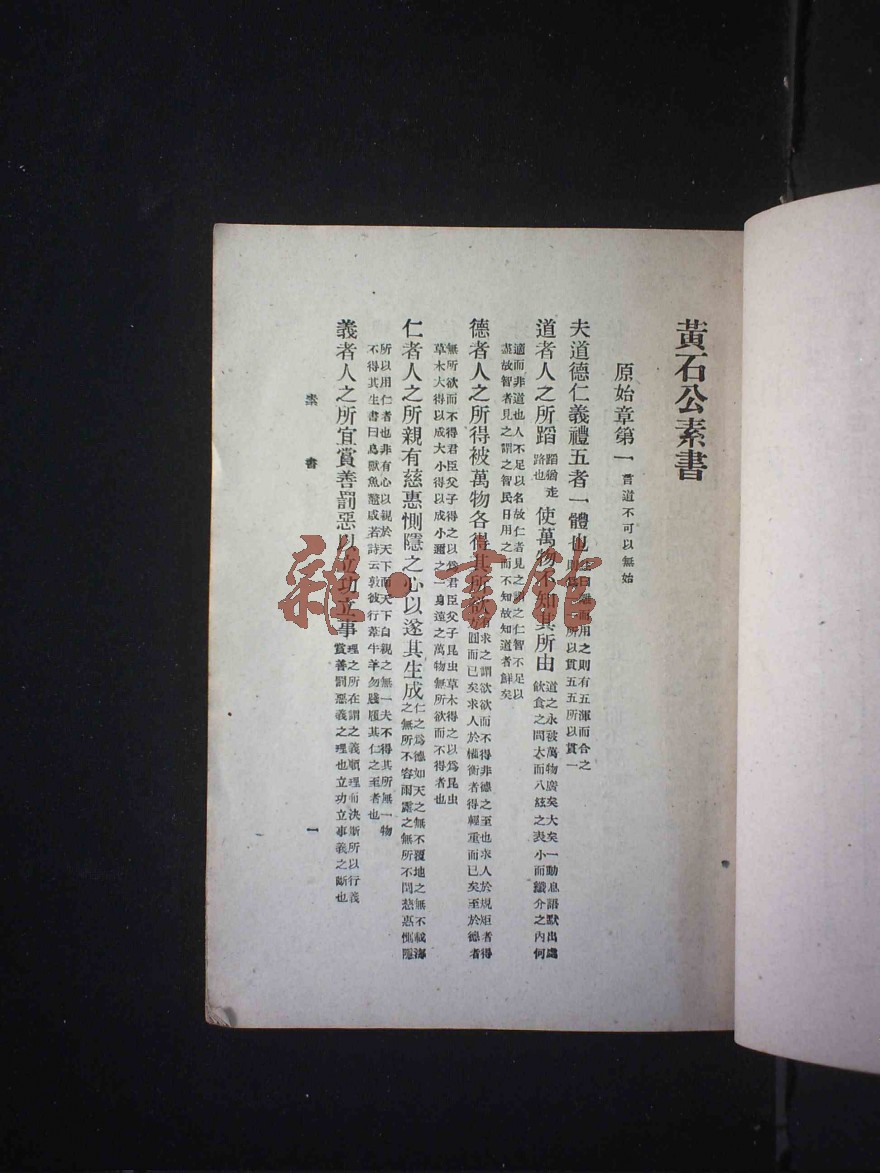 黃石公素書
原始章第一 言道不可以無始
夫道德仁義禮五者一體也 而用之則有五渾而合之
所以貫五五所以貫一
道者人之所蹈 蹈猶走
路也 使萬物不知其所由 道之永被萬物廣矣大矣一動息語默出處
飲食之間大而八紘之表小而纖介之內何
適而非道也人不足以名故仁者見之謂之仁智不足以
盡故智者見之謂之智民日用之而不知故知道者鮮矣
德者人之所得使萬物各得其所欲 求之謂欲欲而不得非德之至也求人於規矩者得
圓而已矣求人於權衡者得輕重而已矣至於德者
無所欲而不得君臣父子得之以為君臣父子昆虫草木得之以為昆虫
草木大得以成大小得以成小邇之一身遠之萬物無所欲而不得者也
仁者人之所親有慈惠惻隱之心以遂其生成 仁之為德如天之無不覆地之無不載海
之無所不容雨露之無所不潤慈惠惻隱
所以用仁者也非有心以親於天下而天下自親之無一夫不得其所無一物
不得其生書曰鳥獸魚鼈咸若詩云敦彼行葦牛羊勿踐履其仁之至者也
義者人之所宜賞善罰惡以立功立事 理之所在謂之義順理而決斷所以行義
賞善罰惡義之理也立功立事義之斷也
素書
一
雜·書館